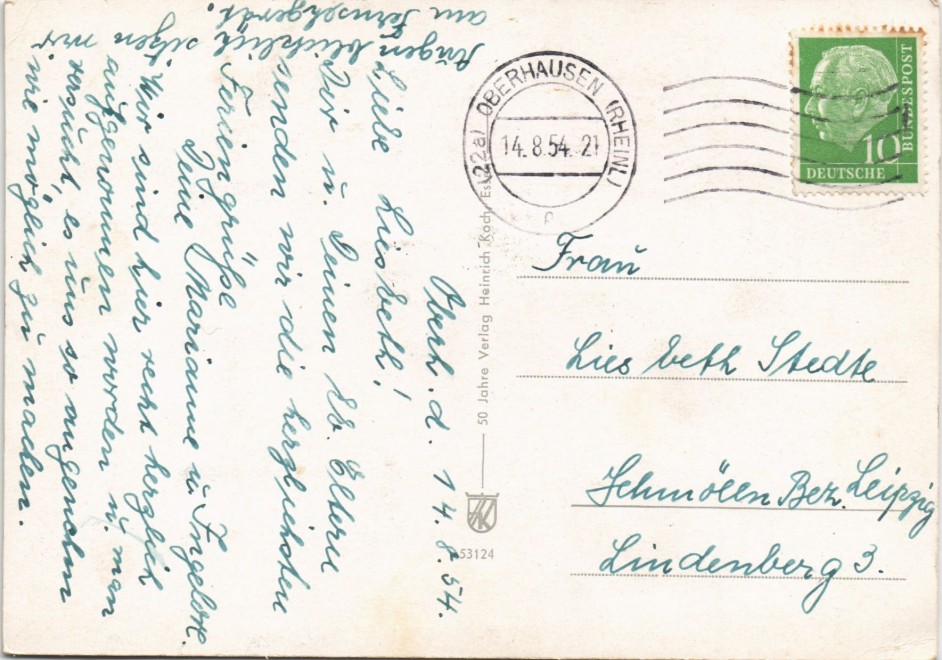 Oberh. d. 14.8.54.
Liebe Liesbeth!
Dir u. Deinen lb. Eltern
senden wir die herzlichsten
Feriengrüße
Deine Marianne u. Ingelore.
Wir sind hier recht herzlich
aufgenommen worden u. man
versucht, es uns so angenehm
wie möglich zu machen.
Augenblicklich sitzen wir
am Fernsehgerät.
50 Jahre Verlag Heinrich Koch, Essen
53124
(22a) OBERHAUSEN (RHEINL)
14.8.54.21
10
DEUTSCHE
BUNDESPOST
Frau
Liesbeth Stedte
Schmölln Bez. Leipzig
Lindenberg 3.